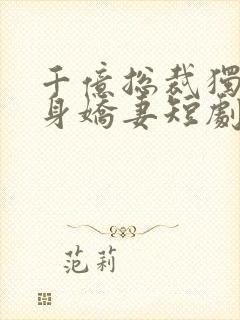 千億总裁獨
身嬌妻短劇
范莉